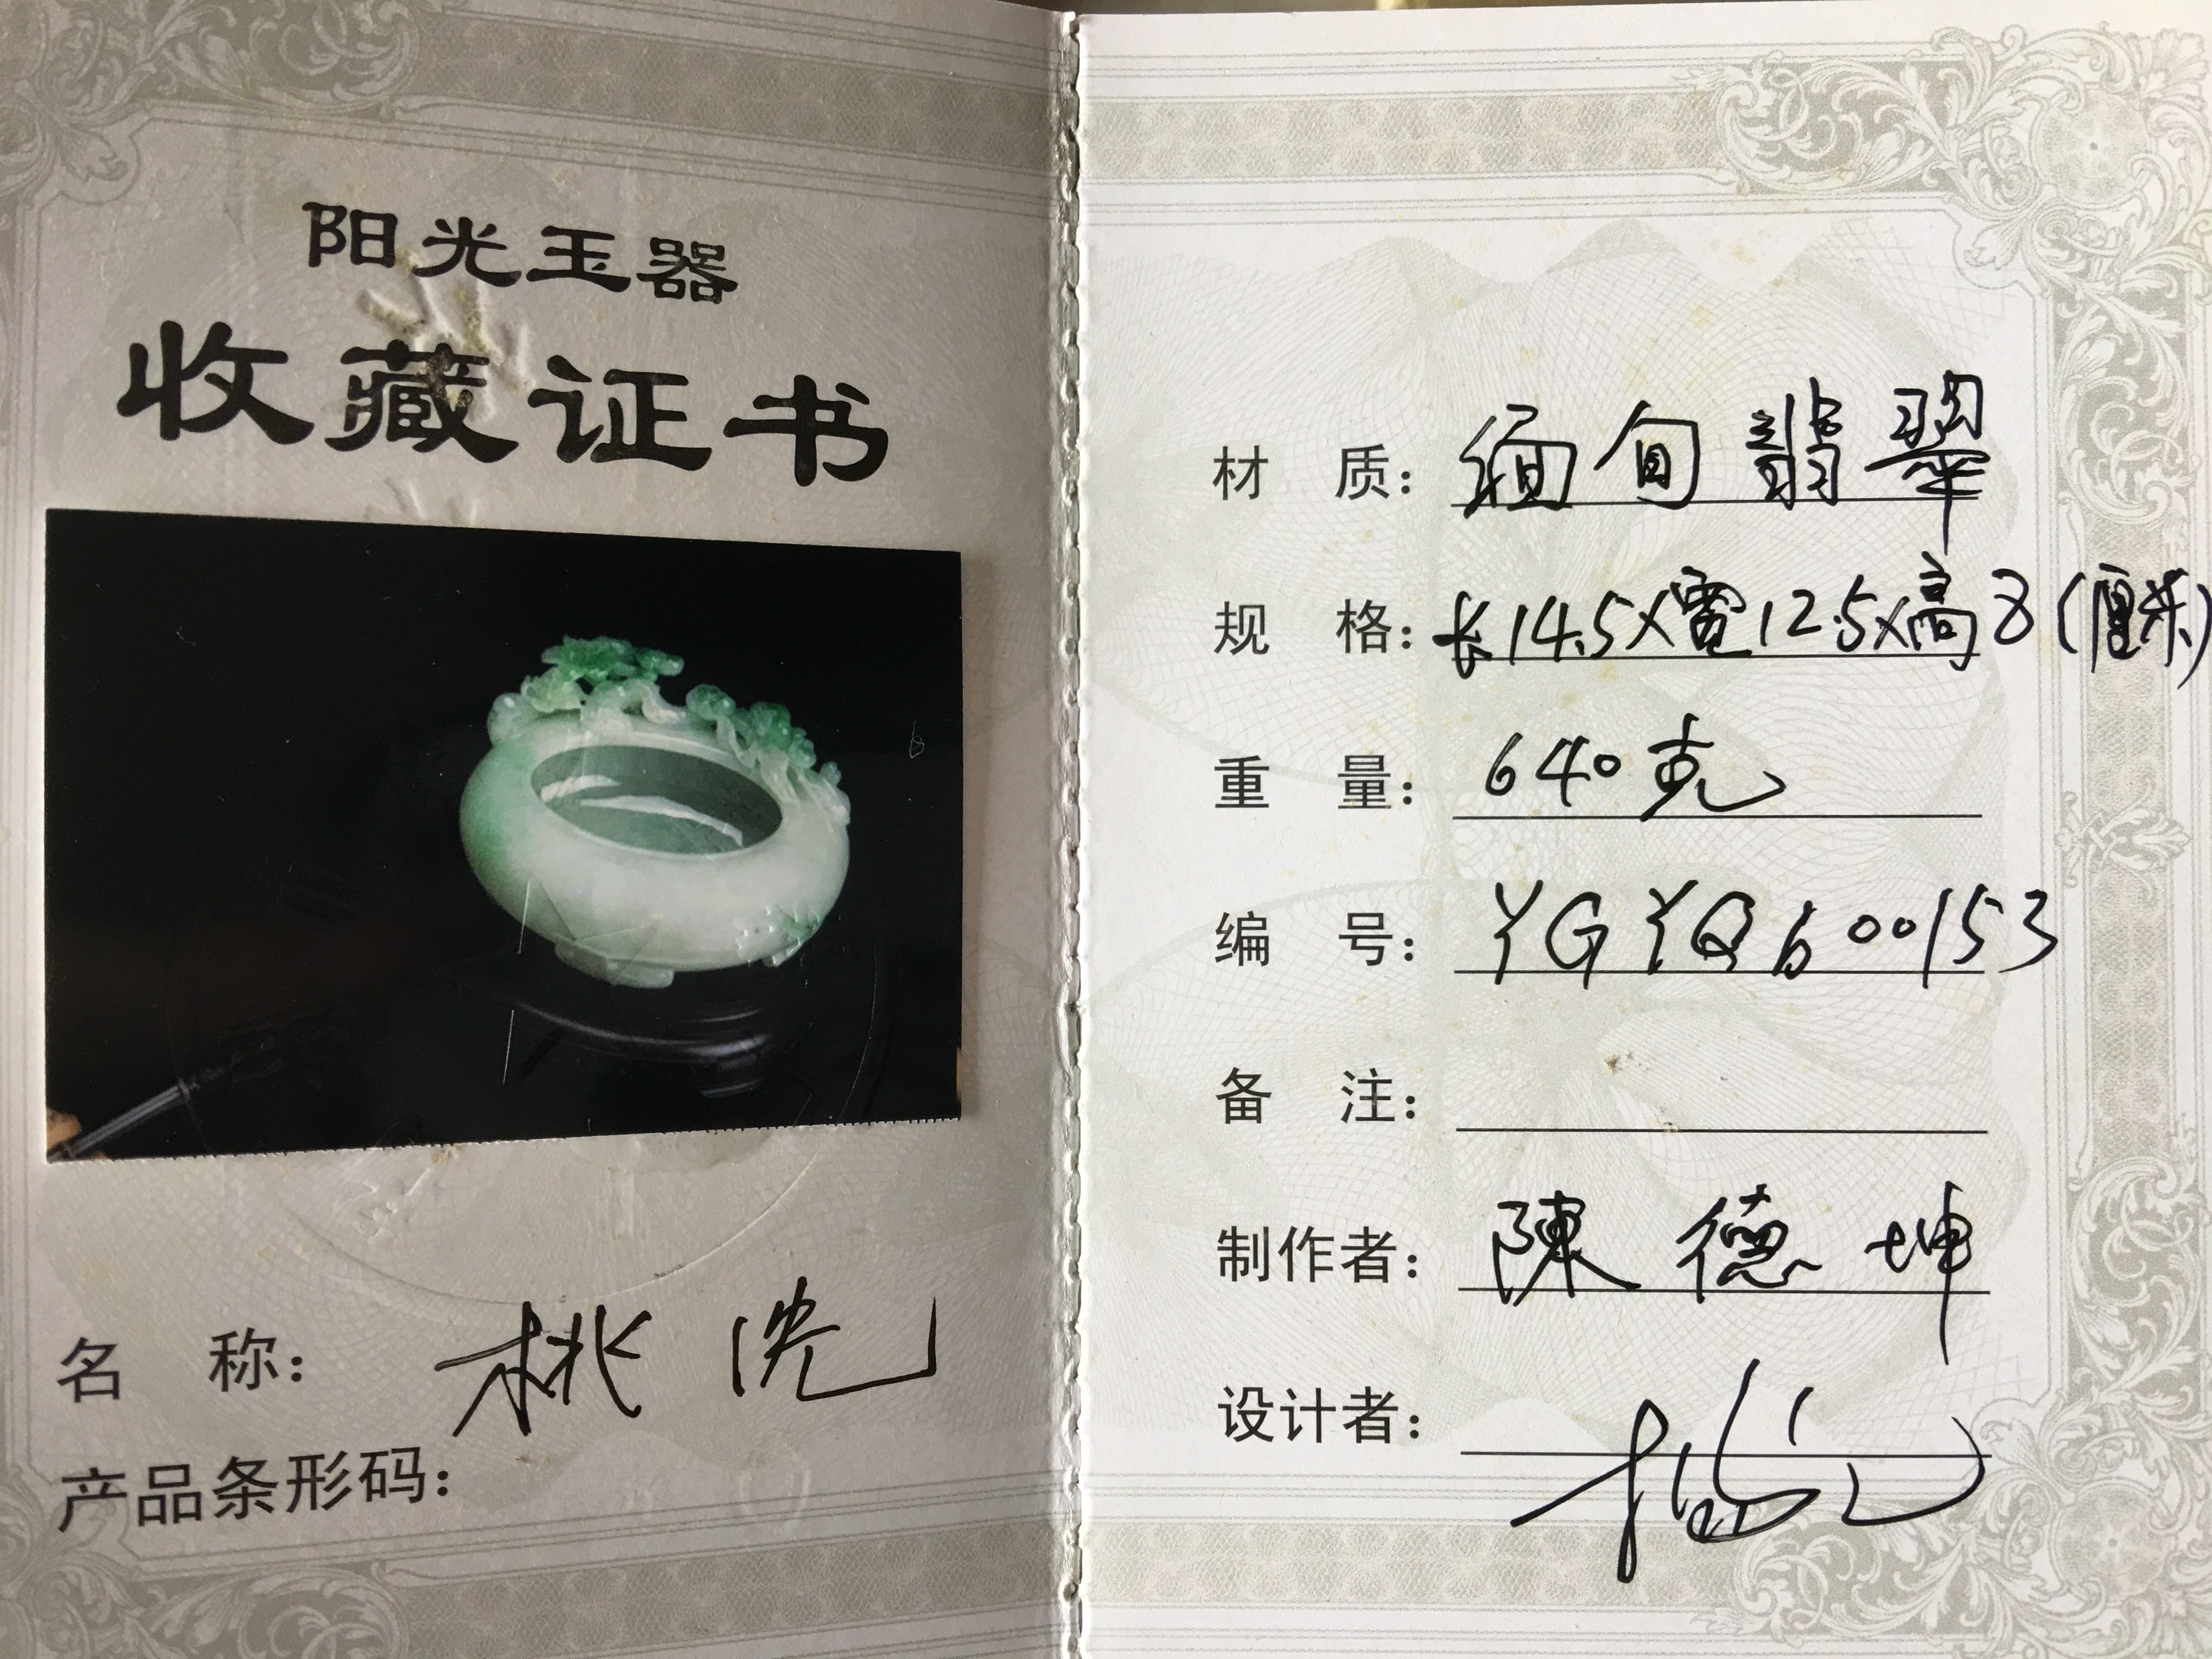 阳光玉器
收藏证书
名 称：桃洗
产品条形码：
材 质：缅甸翡翠
规 格：长14.5×宽12.5×高8（厘米）
重 量：640克
编 号：YGYQ600153
备 注：
制作者：陳德坤
设计者：